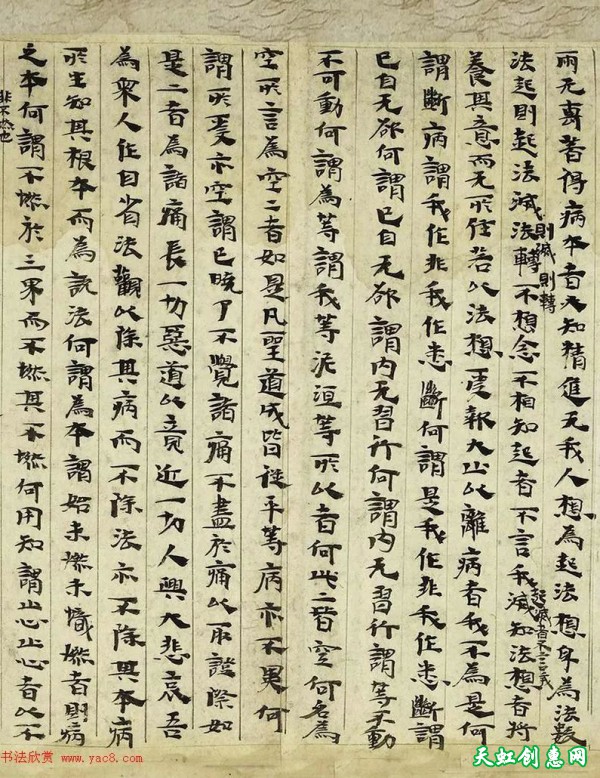 而无專著得病本者必知精進无我人想為起法想身為法數
法起則起法滅法轉不想念不相知起者不言我滅知法想者將
則滅 則轉
起滅者不言我
養其意而无所住若以法想受報大止以離病者我不為是何
謂斷病謂我作非我作悉斷何謂是我作非我作悉斷謂
已自无欲何謂已自无欲謂内无習行何謂内无習行謂等不動
不可動何謂為等謂我等泥洹等所以者何此二皆空何名為
空所言為空二者如是凡聖道成皆從平等病亦不異何
謂所受亦空謂已曉了不覺諸痛不盡於痛以取證際如
是二者為諸痛長一切惡道以竟近一切人興大悲哀吾
為衆人作自省法觀以除其病而不除法亦不除其本病
所生知其根本而為説法何謂為本謂始未燃未熾燃者則病
之本何謂不燃於三界而不燃其不燃何用知謂止心止心者以不
非不燃也
书法欣赏 www.yac8.com
天虹创惠网